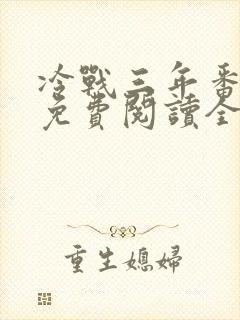 冷戰三年番
免費閱讀全
重生媳婦